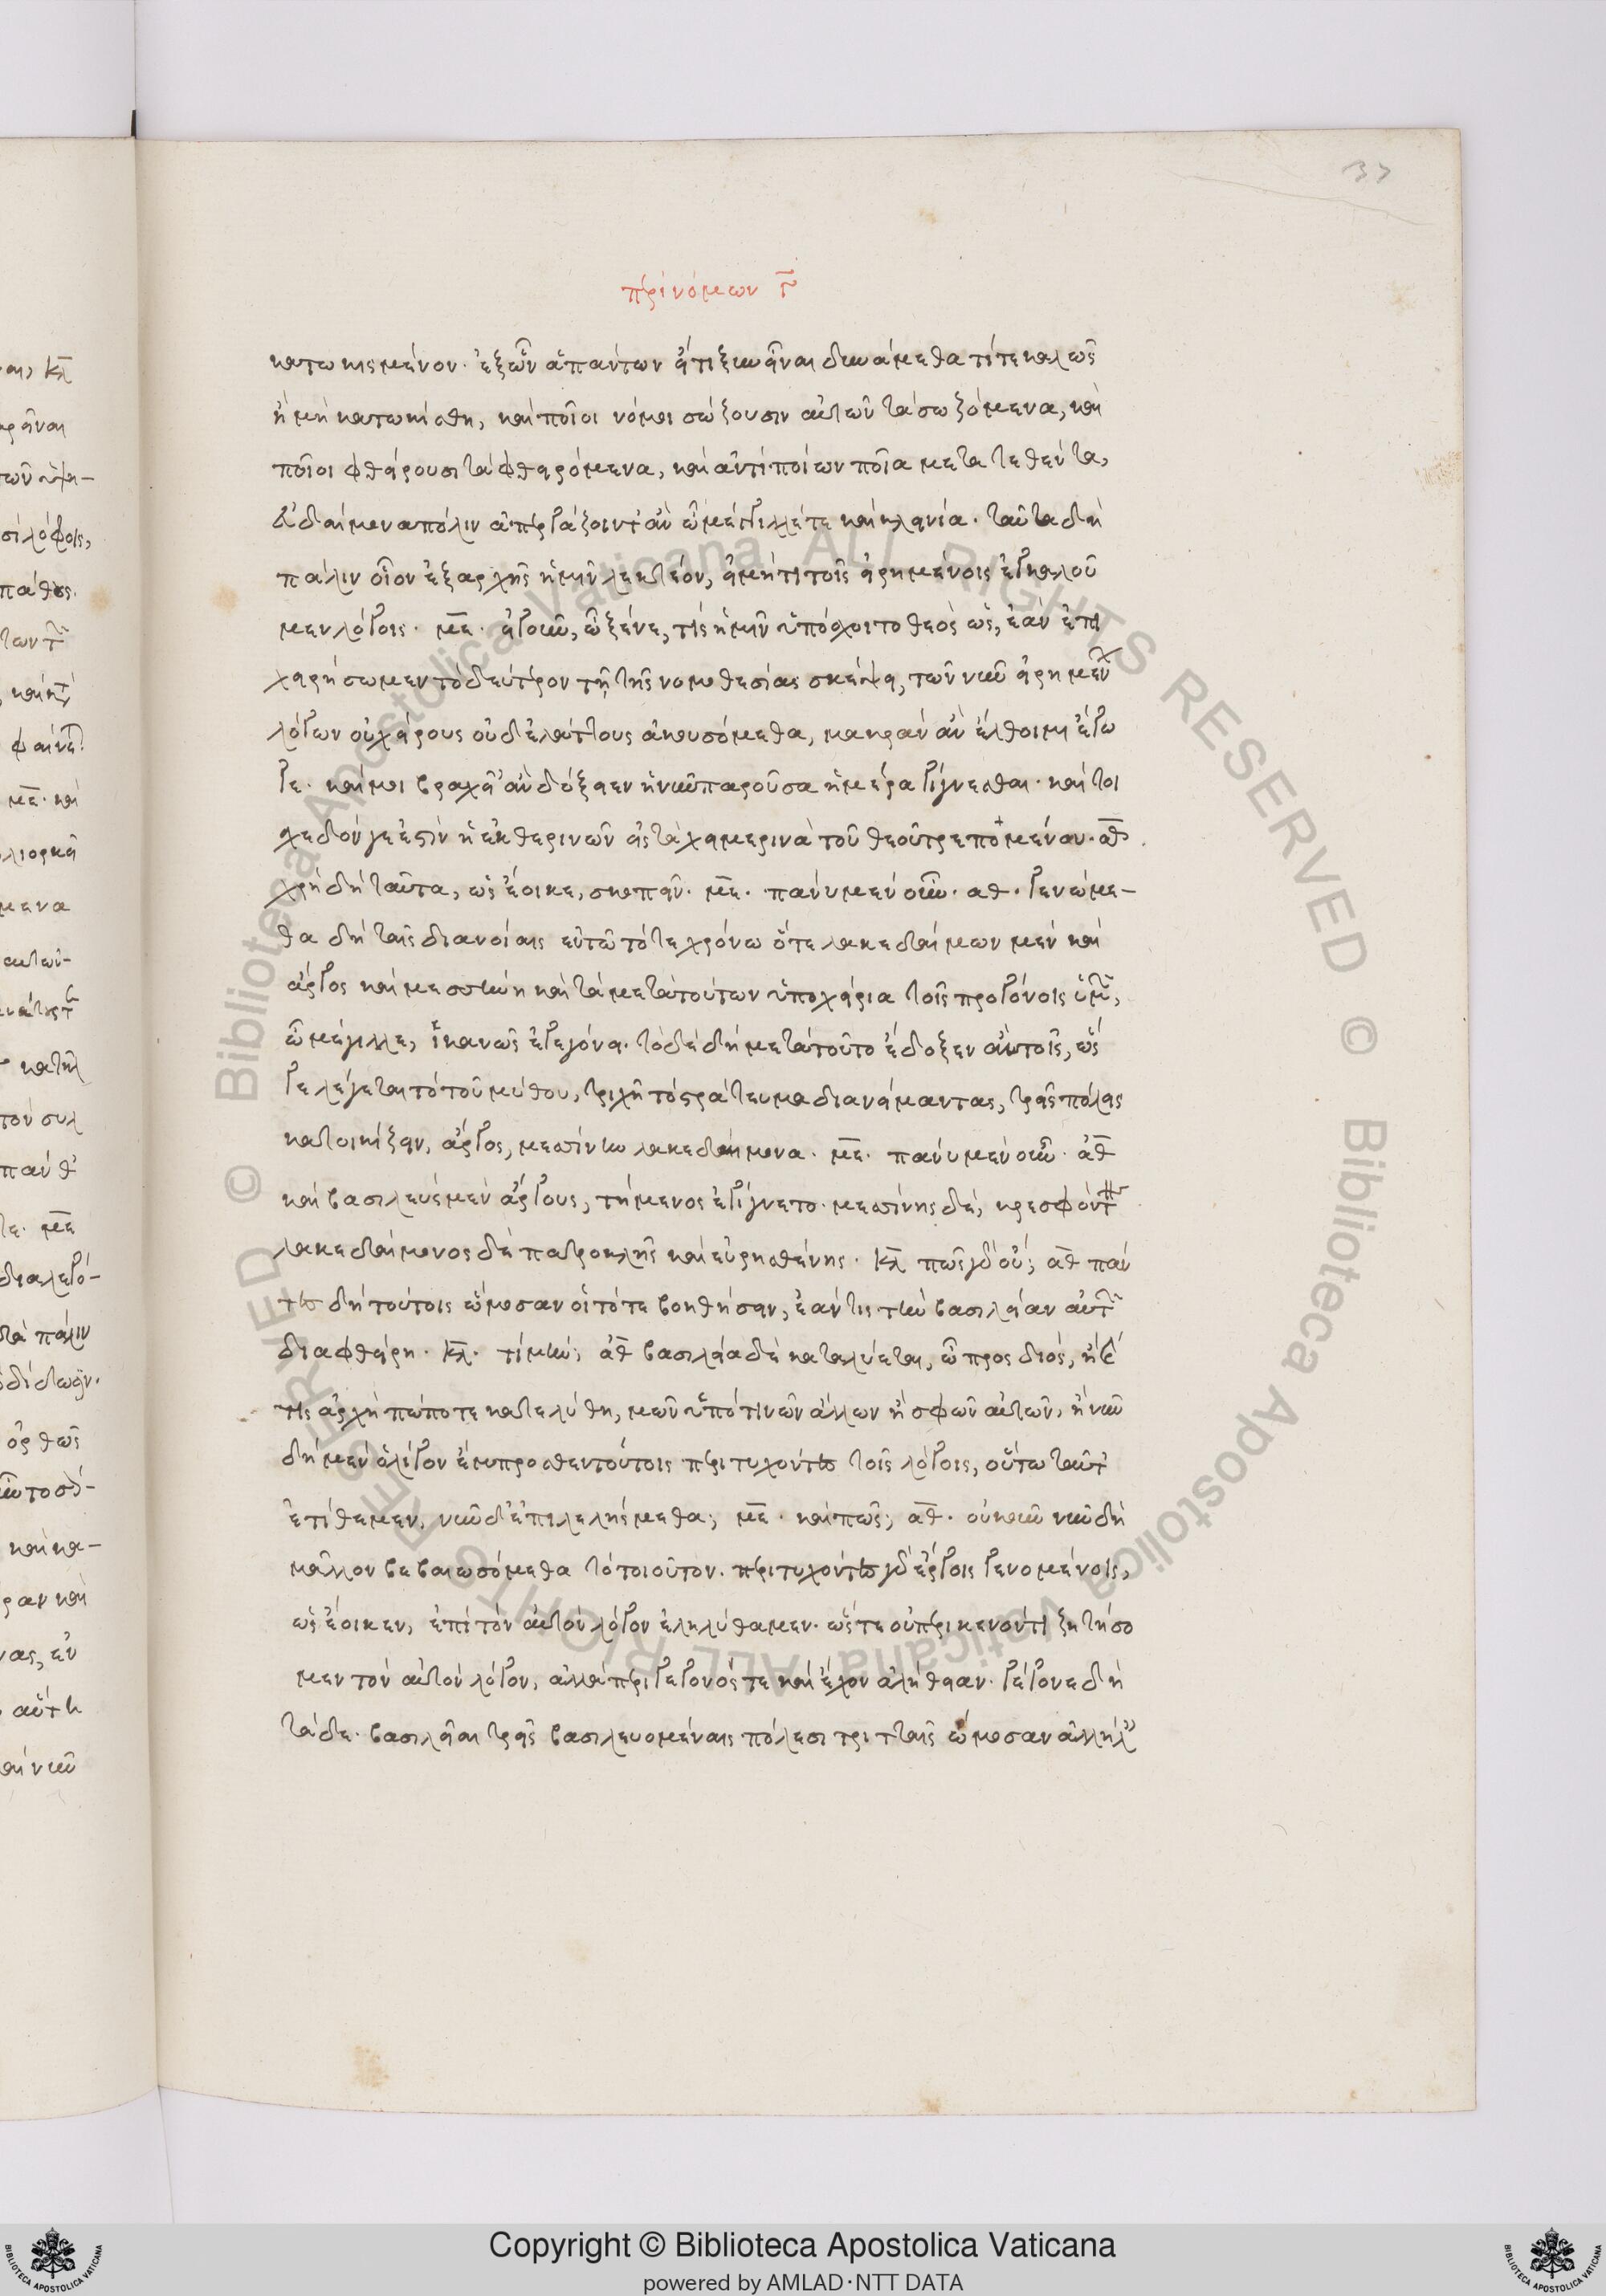 37
περὶ νόμων γ̄
κατωκισμένον. ἐξ ὧν ἁπάντων εἴ τι ξυνεῖναι δυνάμεθα τί τε καλῶς
ἢ μὴ κατωκίσθη, καὶ ποῖοι νόμοι σώζουσιν αὐτῶν τὰ σωζόμενα, καὶ
ποῖοι φθείρουσι τὰ φθειρόμενα, καὶ ἀντὶ ποίων ποῖα μετατεθέντα,
εὐδαίμονα πόλιν ἀπεργάζοιντ' ἂν ὦ μέγιλλέ τε καὶ κλεινία. ταῦτα δὴ
πάλιν οἷον ἐξαρχῆς ἡμῖν λεκτέον, εἰ μή τι τοῖς εἰρημένοις ἐγκαλοῦ
μεν λόγοις. με. εἰ γοῦν, ὦ ξένε, τίς ἡμῖν ὑπόσχοιτο θεὸς ὡς, ἐὰν ἐπι
χειρήσωμεν τὸ δεύτερον τῇ τῆς νομοθεσίας σκέψει, τῶν νῦν εἰρημέν
λόγων οὐ χείρους οὐδ' ἐλάττους ἀκουσόμεθα, μακρὰν ἂν ἔλθοιμι ἔγω
γε. καί μοι βραχεῖ' ἂν δόξειεν ἡ νῦν παροῦσα ἡμέρα γίγνεσθαι. καί τοι
σχεδόν γε ἐστὶν ἡ ἐκ θερινῶν εἰς τὰ χειμερινὰ τοῦ θεοῦ τρεπομένου. αθ.
χρὴ δὴ ταῦτα, ὡς ἔοικε, σκοπεῖν. με. πάνυ μὲν οὖν. αθ. γενώμε-
θα δὴ ταῖς διανοίαις ἐν τῶ τότε χρόνω ὅτε λακεδαίμων μὲν καὶ
ἄργος καὶ μεσσήνη καὶ τὰ μετὰ τούτων ὑποχείρια τοῖς προγόνοις ὑμῶν,
ὦ μέγιλλε, ἱκανῶς ἐγεγόνει. τὸ δὲ δὴ μετὰ τοῦτο ἔδοξεν αὐτοῖς, ὥς
γε λέγεται τὸ τοῦ μύθου, τριχῆ τὸ στράτευμα διανείμαντας, τρεῖς πόλεις
κατοικίζειν, ἄργος, μεσσήνην λακεδαίμονα. με. πάνυ μὲν οὖν. αθ
καὶ βασιλεὺς μὲν ἄργους, τήμενος ἐγίγνετο. μεσσίνης δὲ, κρεσφόντ
λακεδαίμονος δὲ πατροκλῆς καὶ εὐρησθένης. κλ πῶς γὰρ οὔ; αθ πάν
τες δὴ τούτοις ὤμοσαν οἱ τότε βοηθήσειν, ἐάν τις τὴν βασιλείαν αὐτῶν
διαφθείρη. κλ. τί μήν; αθ βασιλεία δὲ καταλύεται, ὦ προς διός, ἢ καί
τις ἀρχὴ πώποτε κατελύθη, μῶν ὑπό τινων ἄλλων ἢ σφῶν αὐτῶν, ἢ νῦν
δὴ μὲν ὀλίγον ἔμπροσθεν τούτοις περιτυχόντες τοῖς λόγοις, οὕτω ταῦτ'
ἐτίθεμεν, νῦν δ' ἐπιλελήσμεθα; με. καὶ πῶς; αθ. οὐκοῦν νῦν δὴ
μᾶλλον βεβαιωσόμεθα τὸ τοιοῦτον. περιτυχόντες γὰρ ἔργοις γενομένοις,
ὡς ἔοικεν, ἐπὶ τὸν αὐτὸν λόγον ἐληλύθαμεν. ὥστε οὐ περὶ κενόν τι ζητήσο
μεν τὸν αὐτὸν λόγον, ἀλλὰ περὶ γεγονός τε καὶ ἔχον ἀλήθειαν. γέγονε δὴ
τάδε. βασιλεῖαι τρεῖς βασιλευομέναις πόλεσι τριτταῖς ὤμοσαν ἀλλήλ